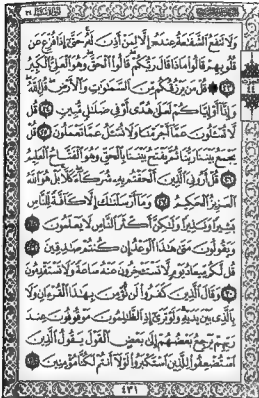 وَلَا تَنفَعُ الشَّفَاعَةُ عِندَهُ إِلَّا لِمَنْ أَذِنَ لَهُ حَتَّىٰ إِذَا فُزِّعَ عَن
قُلُوبِهِمْ قَالُوا مَاذَا قَالَ رَبُّكُمْ قَالُوا الْحَقَّ وَهُوَ الْعَلِيُّ الْكَبِيرُ
﴿٢٣﴾ قُلْ مَن يَرْزُقُكُم مِّنَ السَّمَاوَاتِ وَالْأَرْضِ قُلِ اللَّهُ
وَإِنَّا أَوْ إِيَّاكُمْ لَعَلَىٰ هُدًى أَوْ فِي ضَلَالٍ مُّبِينٍ ﴿٢٤﴾ قُل
لَّا تُسْأَلُونَ عَمَّا أَجْرَمْنَا وَلَا نُسْأَلُ عَمَّا تَعْمَلُونَ ﴿٢٥﴾ قُلْ
يَجْمَعُ بَيْنَنَا رَبُّنَا ثُمَّ يَفْتَحُ بَيْنَنَا بِالْحَقِّ وَهُوَ الْفَتَّاحُ الْعَلِيمُ
﴿٢٦﴾ قُلْ أَرُونِيَ الَّذِينَ أَلْحَقْتُم بِهِ شُرَكَاءَ كَلَّا بَلْ هُوَ اللَّهُ
الْعَزِيزُ الْحَكِيمُ ﴿٢٧﴾ وَمَا أَرْسَلْنَاكَ إِلَّا كَافَّةً لِّلنَّاسِ
بَشِيرًا وَنَذِيرًا وَلَٰكِنَّ أَكْثَرَ النَّاسِ لَا يَعْلَمُونَ ﴿٢٨﴾
وَيَقُولُونَ مَتَىٰ هَٰذَا الْوَعْدُ إِن كُنتُمْ صَادِقِينَ ﴿٢٩﴾
قُل لَّكُم مِّيعَادُ يَوْمٍ لَّا تَسْتَأْخِرُونَ عَنْهُ سَاعَةً وَلَا تَسْتَقْدِمُونَ
﴿٣٠﴾ وَقَالَ الَّذِينَ كَفَرُوا لَن نُّؤْمِنَ بِهَٰذَا الْقُرْءَانِ وَلَا
بِالَّذِي بَيْنَ يَدَيْهِ وَلَوْ تَرَىٰ إِذِ الظَّالِمُونَ مَوْقُوفُونَ عِندَ
رَبِّهِمْ يَرْجِعُ بَعْضُهُمْ إِلَىٰ بَعْضٍ الْقَوْلَ يَقُولُ الَّذِينَ
اسْتُضْعِفُوا لِلَّذِينَ اسْتَكْبَرُوا لَوْلَا أَنتُمْ لَكُنَّا مُؤْمِنِينَ ﴿٣١﴾
٤٣١